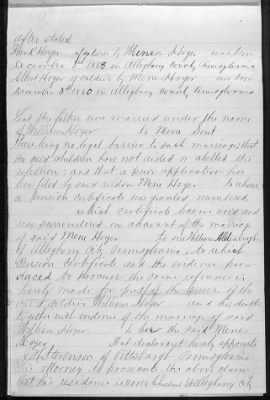 after stated
Frank Hoyer of soldier by Mene Hoyer was born
December 5 1858 in Allegheny County Pennsylvania
Albert Hoyer of soldier by Mene Hoyer was born
December 3rd 1860 in Allegheny County Pennsylvania
That the father was married under the name
of William Hoyer to Mene
there being no legal barrier to such marriage; that
the said children have not aided or abetted the
rebellion; and that a prior application has
been filed by said widow Mene Hoyer to whom
a pension certificate was granted numbered
which certificate became void and
was surrendered on account of the marriage
of said Mene Hoyer to one William
of Allegheny City Pennsylvania to which
Pension certificate and the evidence pro-
duced to procure the same reference is
hereby made for proof of the service of the
soldier William Hoyer and his death
together with evidence of the marriage of said
William Hoyer to her the said Mene
Hoyer That declarant hereby appoints
of Pittsburgh Pennsylvania
his attorney to prosecute the above claim
that his residence is No Allegheny City